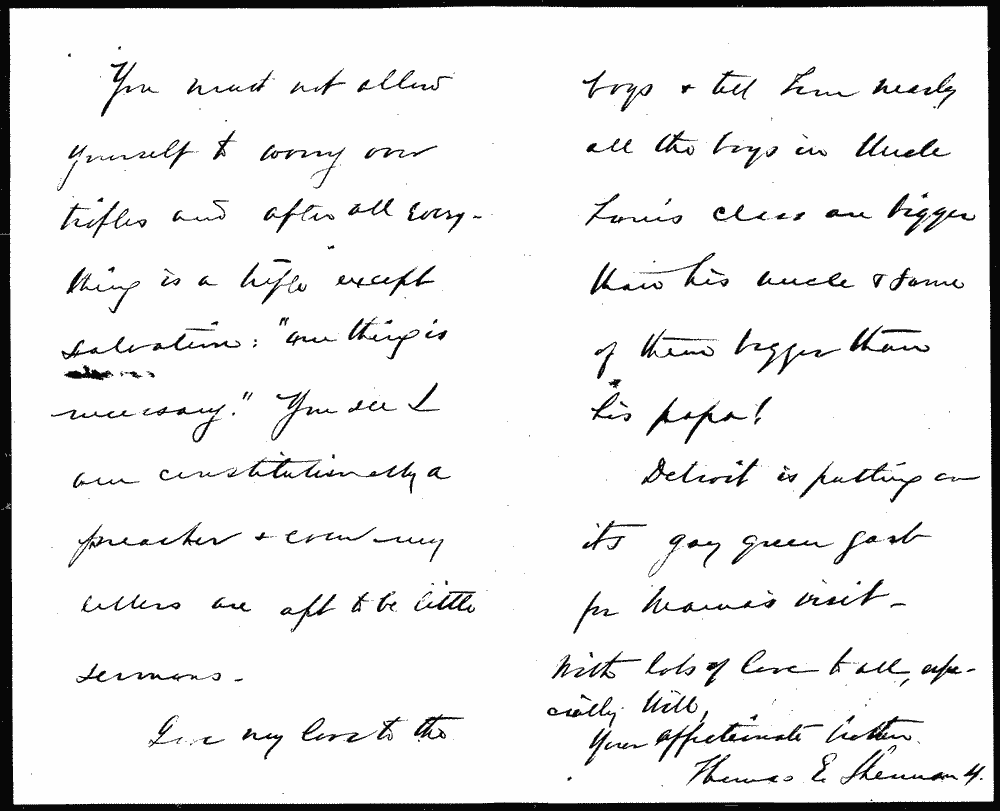 You must not allow
yourself to worry over
trifles and after all every-
thing is a trifle except
salvation: "one thing is
necessary." You see I
am constitutionally a
preacher & even my
letters are apt to be little
sermons -
Give my love to the
boys & tell Tom nearly
all the boys in Uncle
Tom's class are bigger
than his uncle & some
of them bigger than
his papa!
Detroit is putting on
its gay green garb
for Mama's visit -
With lots of love to all, espe-
cially Will,
Your affectionate brother
Thomas E. Sherman